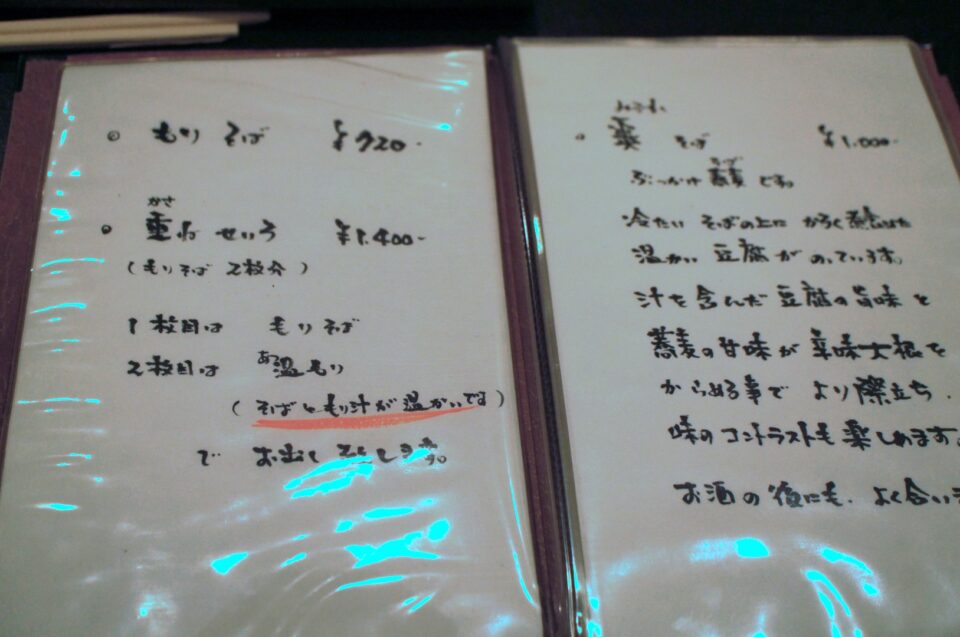 もりそば ¥720-
かさ
重ねせいろ ¥1.400-
(もりそば 2枚分)
1枚目は もりそば
2枚目は 温もり
(そばともり汁が温かいです)
で お出し致します。
そば ¥1.000-
そば
ぶっかけ蕎麦です。
冷たい そばの上に かるく煮含めた
温かい 豆腐が のっています。
汁を含んだ豆腐の旨味と
蕎麦の甘味が 辛味大根を
からめる事で より際立ち、
味のコントラストも楽しめます。
お酒の後にも、よく合い